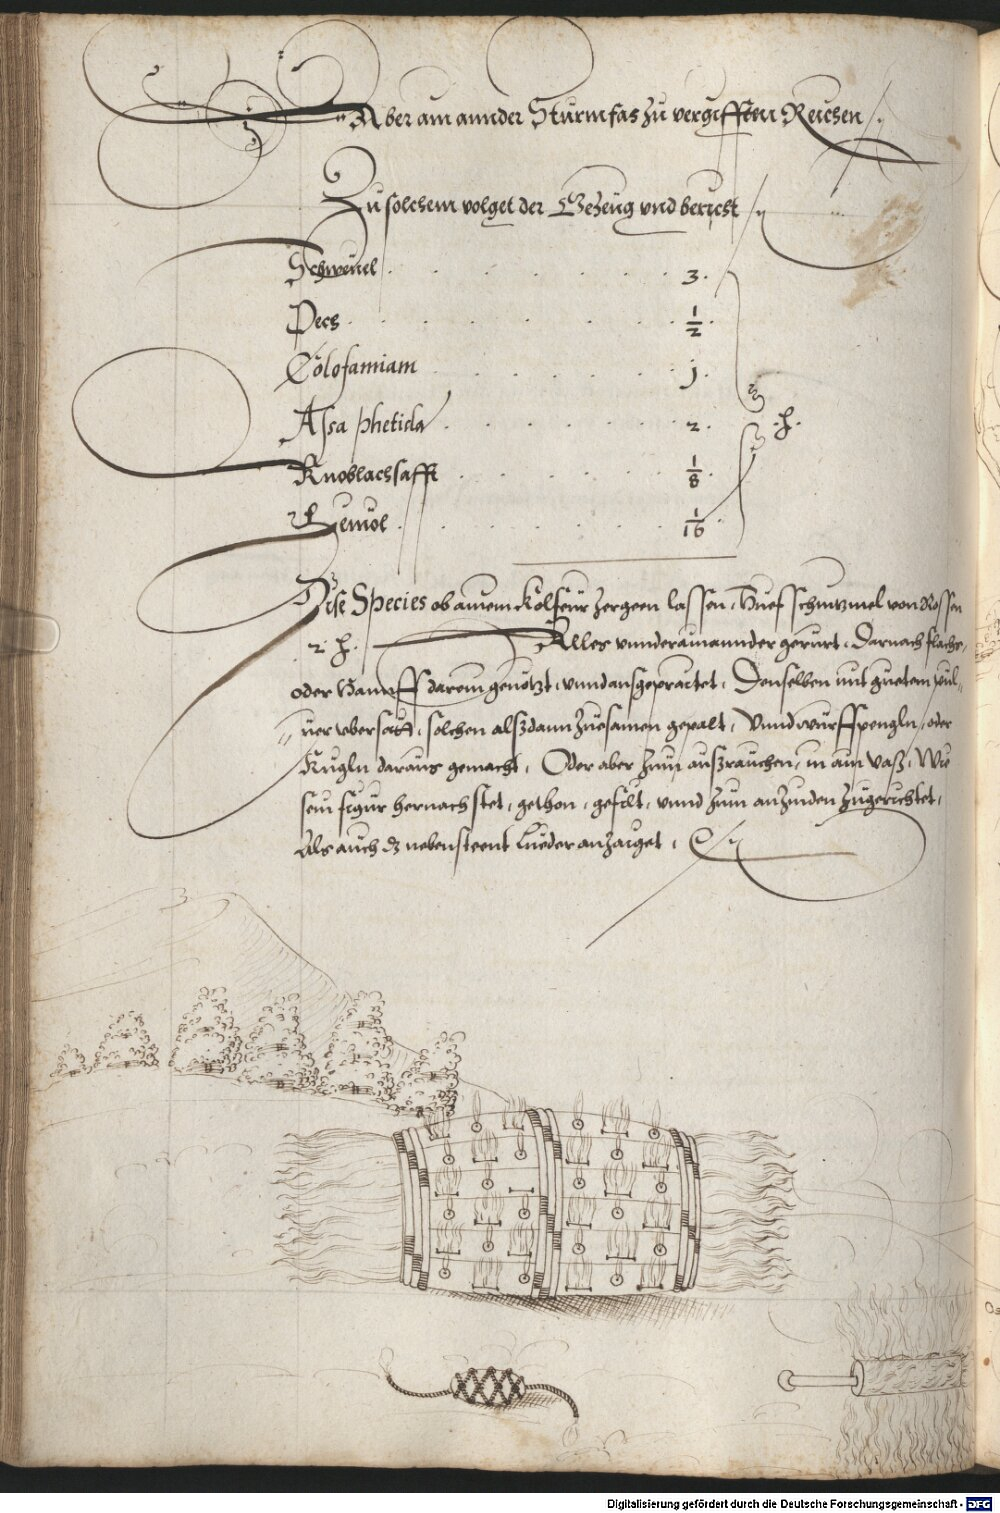 Aber ain annder Sturmfas zu vergifften Reuchen
Zu solchem volget der Gezeug vnd bericht
Schweuel . . . . . . . 3.
Pech . . . . . . . 1/2.
Colofamiam . . . . . j.
Assa phetida . . . . . 2. ℔.
Knoblachsafft . . . . . 1/8.
Leinöl . . . . . . 1/16.
Dise Species ob ainem Kolfeur zergeen lassen, Huefschnitzmel von Rossen
2 ℔. Alles vnnderainannder gerürt. Darnach flachs,
oder Hannff darein genötzt, vnnd ausgepraitet, Denselben mit guetem pul-
uer vbersätt, solchen alßdann zuesamen gepalt, Vnnd wurffpengln, oder
Kugln daraus gemacht, Oder aber zum außrauchen, in ain Vaß, Wie
sein figur hernach stet, gethon, gefilt, vnnd zum anzünden zugerichtet,
Als auch dz nebensteent Lueder anzaiget,
Digitalisierung gefördert durch die Deutsche Forschungsgemeinschaft - DFG